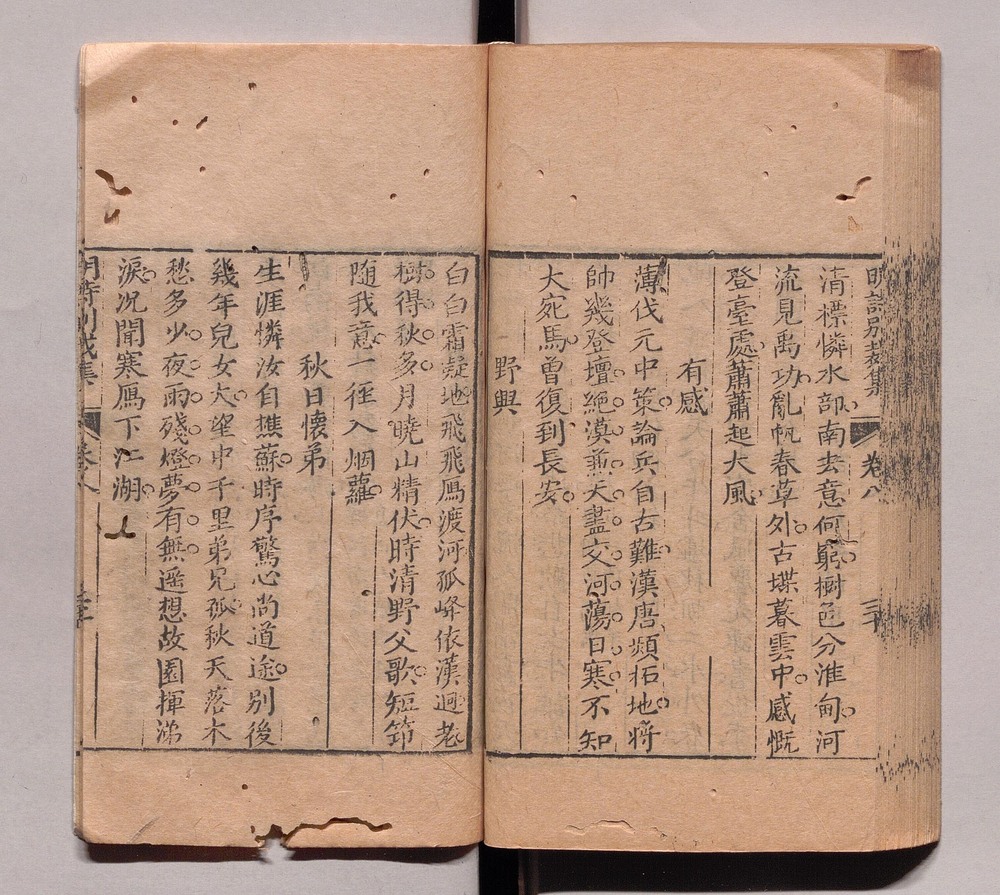 明詩別裁集 卷八 三十
清標憐水部南去意何窮樹色分淮甸河
流見禹功亂帆春草外古堞暮雲中感慨
登臺處蕭蕭起大風
有感
薄伐元中策論兵自古難漢唐頻拓地將
帥幾登壇絶漠兼天盡交河蕩日寒不知
大宛馬曾復到長安
野興
白白霜凝地飛飛鴈渡河孤峰依漢迥老
樹得秋多月曉山精伏時清野父歌短笻
隨我意一徑入烟蘿
秋日懷弟
生涯憐汝自樵蘇時序驚心尚道途別後
幾年兒女大望中千里弟兄孤秋天落木
愁多少夜雨殘燈夢有無遥想故園揮涕
淚況聞寒鴈下江湖
明詩別裁集 卷八